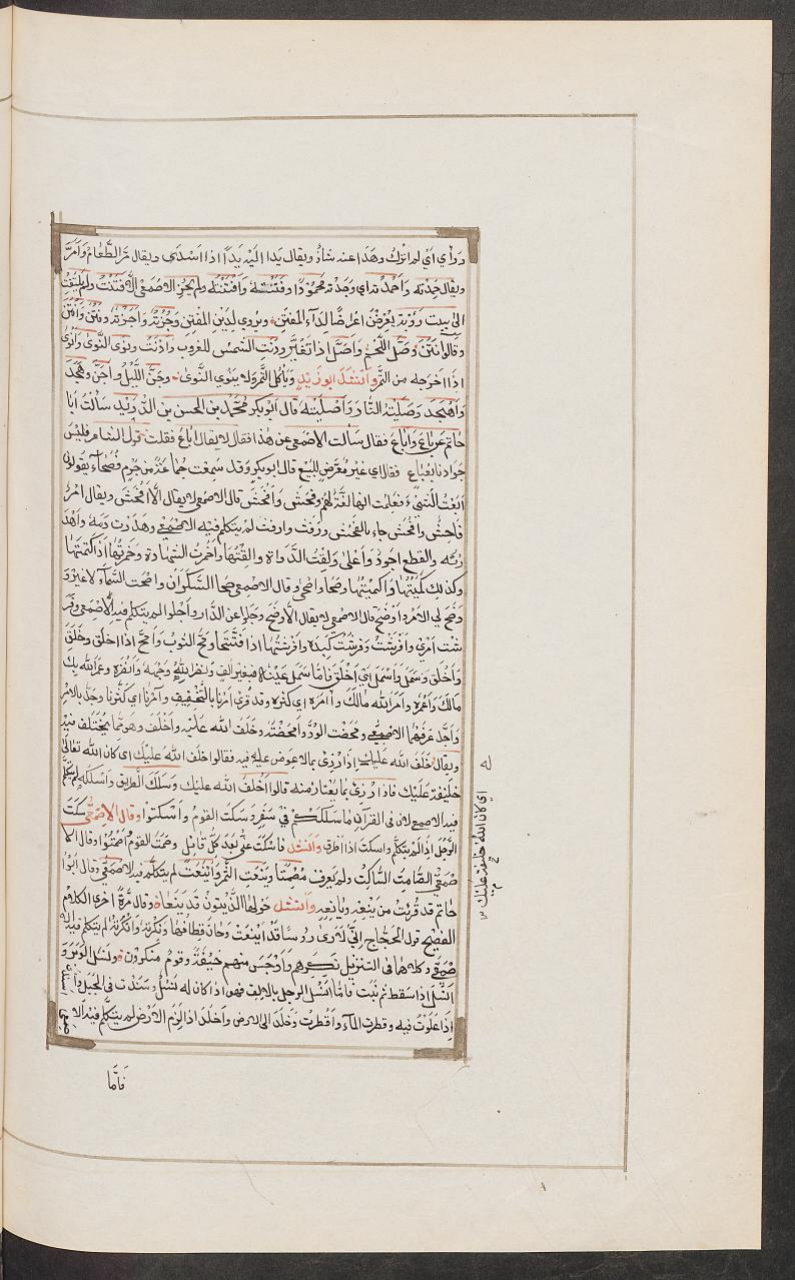 ورأي اي لم اترك وهذا عنه شاذ ويقال يدا اليه يدا اذا اسدى ويقال مر الطعام وامر
ويقال جدته واجدته اي وجدته محمودا وفتنته وافتنته ولم يجز الاصمعي الا فتنت ولم يلتفت
الى بيت روبة يعرضن اعراضا لداء المفتن ويروي لدين المفتن وجزته واجزته ونتن وانتن
وقالوا نتن وصل اللحم واصل اذا تغير ودنت الشمس للغروب وادنت ونوى النوى وانوى
اذا اخرجه من التمر وانشد ابو زيد ويأكل التمر ولا ينوي النوى وجن الليل واجن وهجد
واهجد وصليته النار واصليته قال ابو بكر محمد بن الحسن بن الدريد سألت ابا
حاتم عن باع واباع فقال سألت الاصمعي عن هذا فقال لا يقال اباع فقلت قول الشاعر فليس
جوادنا بمباع فقال اي غير معرض للبيع قال ابو بكر وقد سمعت جماعة من جرم فصحاء يقولون
ابعت الشيء فعلمت انها لغة لهم وفحش وافحش قال الاصمعي لا يقال الا افحش ويقال امر
فاحش وافحش جاء بالفحش ورفث وارفث لم يتكلم فيه الاصمعي وهدرت دمه واهد
رته والقطع اجود واعلى ولقت الدواة والقتها واخمرت الشهادة وخمرتها اذا كتمتها
وكذلك كميتها واكميتها وضحا واضحى وقال الاصمعي صحا السكران واصحت السماء لا غير و
وضح لي الامر واوضح قال الاصمعي لا يقال الا وضح وجلوا عن الدار واجلوا لم يتكلم فيه الاصمعي وفر
شت امري وافرشت وفرثت كبده وافرثتها اذا فتتتها ومح الثوب وامح اذا اخلق وخلق
واخلق وسمل واسمل اي اخلق فاما سمل عينه فبغير الف ونضر الله وجهه وانضره وعمر الله بك
مالك واعمره وامر الله مالك وآمره اي كثره وقد قرئ امرنا بالتخفيف وآمرنا اي كثرنا وجد بالامر
واجد عرفهما الاصمعي ومحضت الود وامحضته وخلف الله عليه واخلف وهو مما يختلف فيه
ويقال خلف الله عليك اذا رزئ بما لا عوض عليه فيه فقالوا خلف الله عليك اي كان الله تعالى
خليفة عليك فاذا رزئ بما يعتاز منه قالوا اخلف الله عليك وسلك الطريق واسلكه لم يتكلم
فيه الاصمعي لان في القرآن ما سلككم في سقر وسكت القوم واسكتوا وقال الاصمعي سكت
الرجل اذا لم يتكلم واسكت اذا اطرق وانشد فاسكت عني بعد كل قائل وصمت القوم اصمتوا وقال الا
صمعي الصامت الساكت ولم يعرف مصمتا وينعت التمر واينعت لم يتكلم فيه الاصمعي وقال ابو
حاتم قد قرئت من ينعه ويانعه وانشد حولها الزيتون قد ينعا وقال مرة اخرى الكلام
الفصيح قول الحجاج اني لارى رؤسا قد اينعت وحان قطافها ونكرته وانكرته لم يتكلم فيه الا
صمعي وكلاهما في التنزيل نكرهم واوجس منهم خيفة وقوم منكرون ونسل الوبر و
انسل اذا سقط ثم نبت فاما انسل الرجل بالالف فهو اذا كان له نسل وسندت في الجبل واسندت
اذا علوت فيه وقطرت الماء واقطرت وخلد الى الارض واخلد اذا لزم الارض لم يتكلم فيه الاصمعي
فاما
اي كان الله خليفة عليك